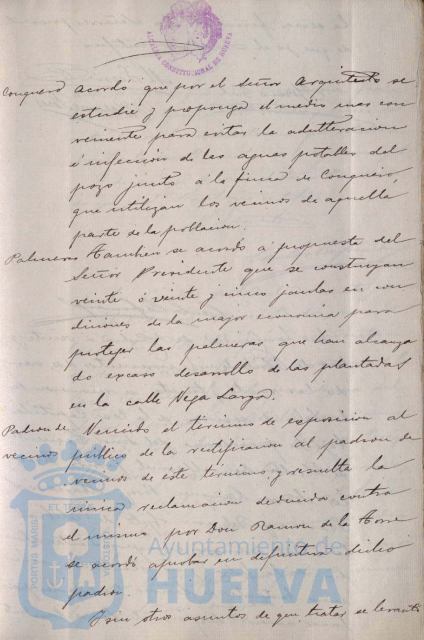 ALCALDIA CONSTITUCIONAL DE HUELVA
Conquero acordó que por el señor Arquitecto se
estudie y proponga el medio mas con
veniente para evitar la adulteracion
é infeccion de las aguas potables del
pozo junto á la finca de Conquero,
que utilizan los vecinos de aquella
parte de la poblacion.
Palmeras Tambien se acordó á propuesta del
Señor Presidente que se construyan
veinte ó veinte y cinco jaulas en con
diciones de la mayor economia para
proteger las palmeras que han alcanza
do escaso desarrollo de las plantadas
en la calle Vega Larga.
Padron de Vencido el término de exposicion al
vecinos público de la rectificacion al padron de
vecinos de este término y resuelta la
única reclamacion deducida contra
el mismo por Don Ramon de la Torre
se acordó aprobar en definitiva dicho
padron.
Y sin otros asuntos de que tratar se levantó
PORTUS MARIS
Ayuntamiento de
HUELVA